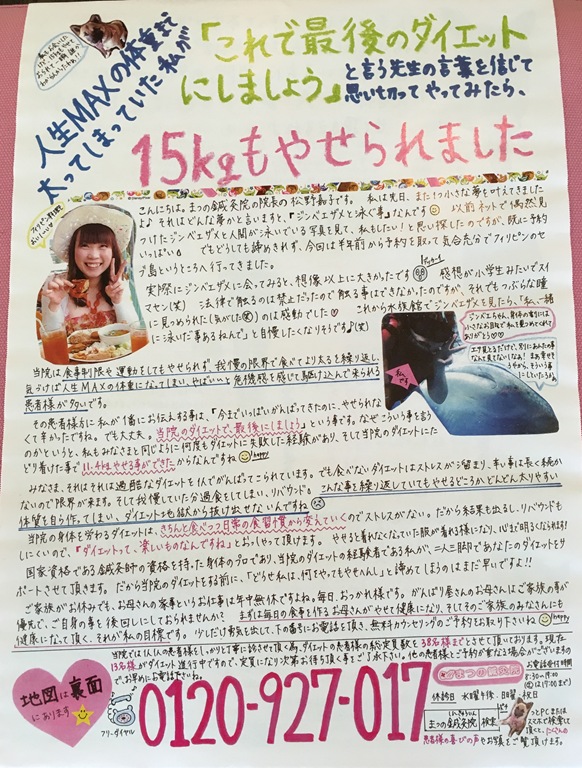 人生MAXの体重まで
太ってしまっていた私が
「これで最後のダイエット
にしましょう」と言う先生の言葉を信じて
思い切ってやってみたら、
15kgもやせられました
フィリピン料理
おいしい♡
こんにちは。まつの鍼灸院の院長の松野嘉子です。私は先日、また1つ小さな夢を叶えてきました
よ♪それはどんな夢かと言いますと、『ジンベエザメと泳ぐ事』なんです 以前ネットで偶然見
つけたジンベエザメと人間が泳いでいる写真を見て、私もしたい!と思い探したのですが、既に予約
いっぱい でもどうしても諦めきれず、今回は半年前から予約を取って気合充分でフィリピンのセ
ブ島というところへ行ってきました。
実際にジンベエザメに会ってみると、想像以上に大きかったです 感想が小学生みたいでスイ
マセン(笑) 法律で触るのは禁止だったので触る事はできなかったのですが、それでもつぶらな瞳
に見つめられた(気がした笑)のは感動でした♡ これから水族館でジンベエザメを見たら、「私、一緒
に泳いだ事あるねんで」と自慢したくなりそうです♪(笑)
私です
当院は食事制限や運動をしてもやせられず、我慢の限界で食べてより太るを繰り返し、
気づけば人生MAXの体重になってしまい、やばい!!と危機感を感じて駆け込んで来られる
患者様が多いです。
その患者様方に私が1番にお伝えする事は、「今までいっぱいがんばってきたのに、やせられな
くて辛かったですね。でも大丈夫。当院のダイエットで、最後にしましょう」という事です。なぜこういう事を言う
のかというと、私もみなさまと同じように何度もダイエットに失敗した経験があり、そして当院のダイエットにた
どり着けた事で11.4kgやせる事ができたからなんですね happy
みなさま、それはそれは過酷なダイエットを1人でがんばってこられています。でも食べないダイエットはストレスが溜まり、辛い事は長く続か
ないので限界が来ます。そして我慢していた分過食をしてしまい、リバウンド。こんな事を繰り返していてもやせるどころか、どんどん太りやすい
体質を自ら作ってしまい、ダイエット地獄から抜け出せないんですね
当院の身体を労わるダイエットは、きちんと食べつつ日常の食習慣から変えていくのでストレスがない。だから結果も出るし、リバウンドも
しにくいので、『ダイエットって、楽しいものなんですね』とおっしゃって頂けます。やせると着れなくなていた服が着れる様になり、心まで明るくなれます!
国家資格である鍼灸師の資格を持った身体のプロであり、当院のダイエットの経験者である私が、二人三脚であなたのダイエットをサ
ポートさせて頂きます。だから当院のダイエットをする前に、「どうせ私は、何をやってもやせへんし」と諦めてしまうのはまだ早いですよ!!
ご家族がお休みでも、お母さんの家事というお仕事は年中無休ですよね。毎日、おつかれ様です。がんばり屋さんのお母さんはご家族の事が
優先で、ご自身の事を後回しにしておられませんか? まずは毎日の食事を作るお母さんがやせて健康になり、そしてそのご家族のみなさんにも
健康になって頂く、それが私の目標です。少しだけ勇気を出して、下の番号にお電話を頂き、無料カウンセリングのご予約をお取り下さいね happy
当院では1人1人の患者様をしっかりと丁寧に診させて頂く為、ダイエットの患者様の総定員数を38名様までとさせて頂いております。現在
13名様がダイエット進行中ですので、定員になり次第お待ち頂く事をご了承下さい。他の患者様とご予約が重なる場合がございますの
で、お早めにお電話下さい。
地図は裏面
にあります
フリーダイヤル
0120-927-017
まつの鍼灸院
お電話受付時間
8:30〜19:00
休診日 水曜午後・日曜・祝日
まつの鍼灸院 検索
PCまたは
スマホで検索して
頂くと、たくさんの
患者様の喜びの声やお写真をご覧頂けます。